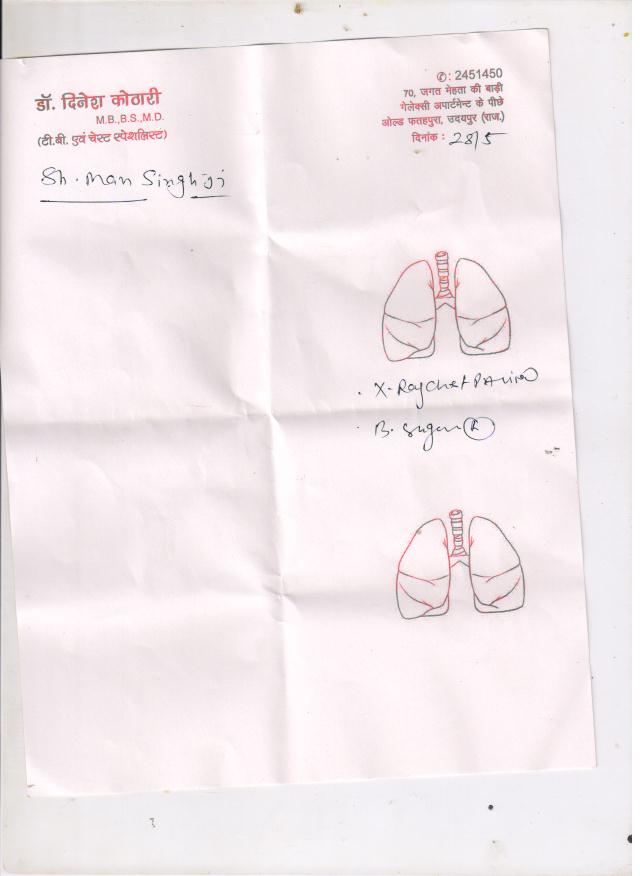 डॉ. दिनेश कोठारी
M.B.,B.S.,M.D.
(टी.बी. एवं चेस्ट स्पेशलिस्ट)
✆: 2451450
70, जगत मेहता की बाड़ी
गेलेक्सी अपार्टमेन्ट के पीछे
ओल्ड फतहपुरा, उदयपुर (राज.)
दिनांक : 28/5
Sh. Man Singh ji
. X-Ray Chest PA view
. B. Sugar (R)